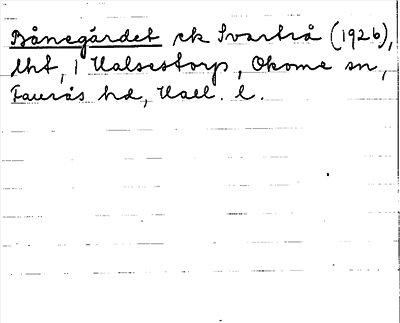 Bånegärdet ek Svartrå (1926),
lht, i Valsestorp, Okome sn,
Faurås hd, Hall. l.